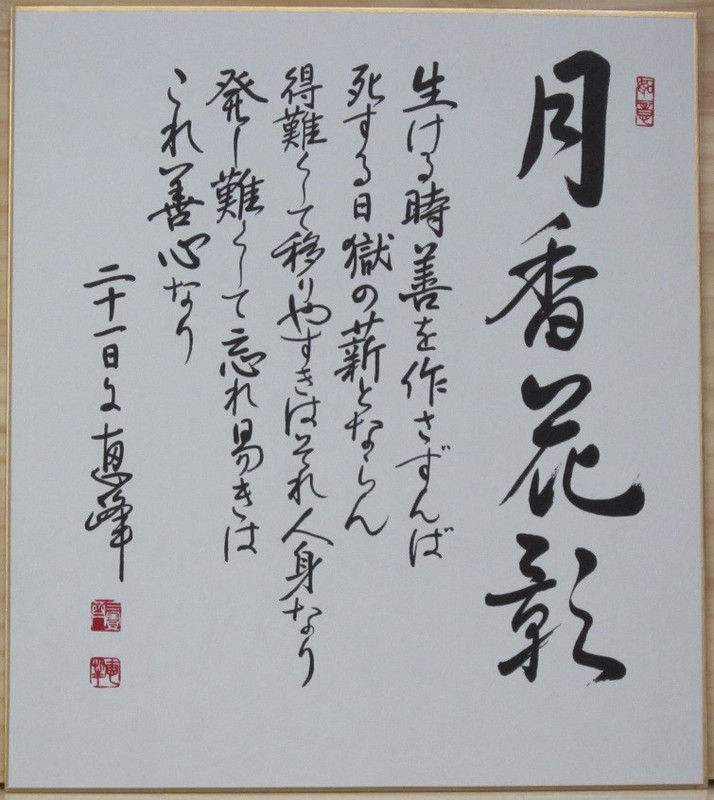 月香花影
生ける時善を作さずんば
死する日獄の薪とならん
得難くして移りやすきはそれ人身なり
発し難くして忘れ易きは
これ善心なり
二十一日文恵峰